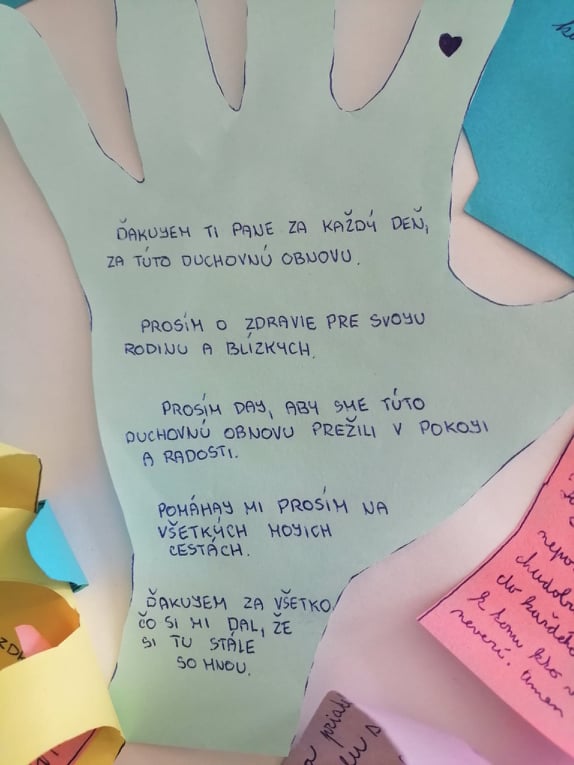 ĎAKUJEM TI PANE ZA KAŽDÝ DEŇ,
ZA TÚTO DUCHOVNÚ OBNOVU.
PROSÍM O ZDRAVIE PRE SVOJU
RODINU A BLÍZKYCH.
PROSÍM DAJ, ABY SME TÚTO
DUCHOVNÚ OBNOVU PREŽILI V POKOJI
A RADOSTI.
POMÁHAJ MI PROSÍM NA
VŠETKÝCH MOJICH
CESTÁCH.
ĎAKUJEM ZA VŠETKO
ČO SI MI DAL, ŽE
SI TU STÁLE
SO MNOU.
komu kto
neverí. Amen